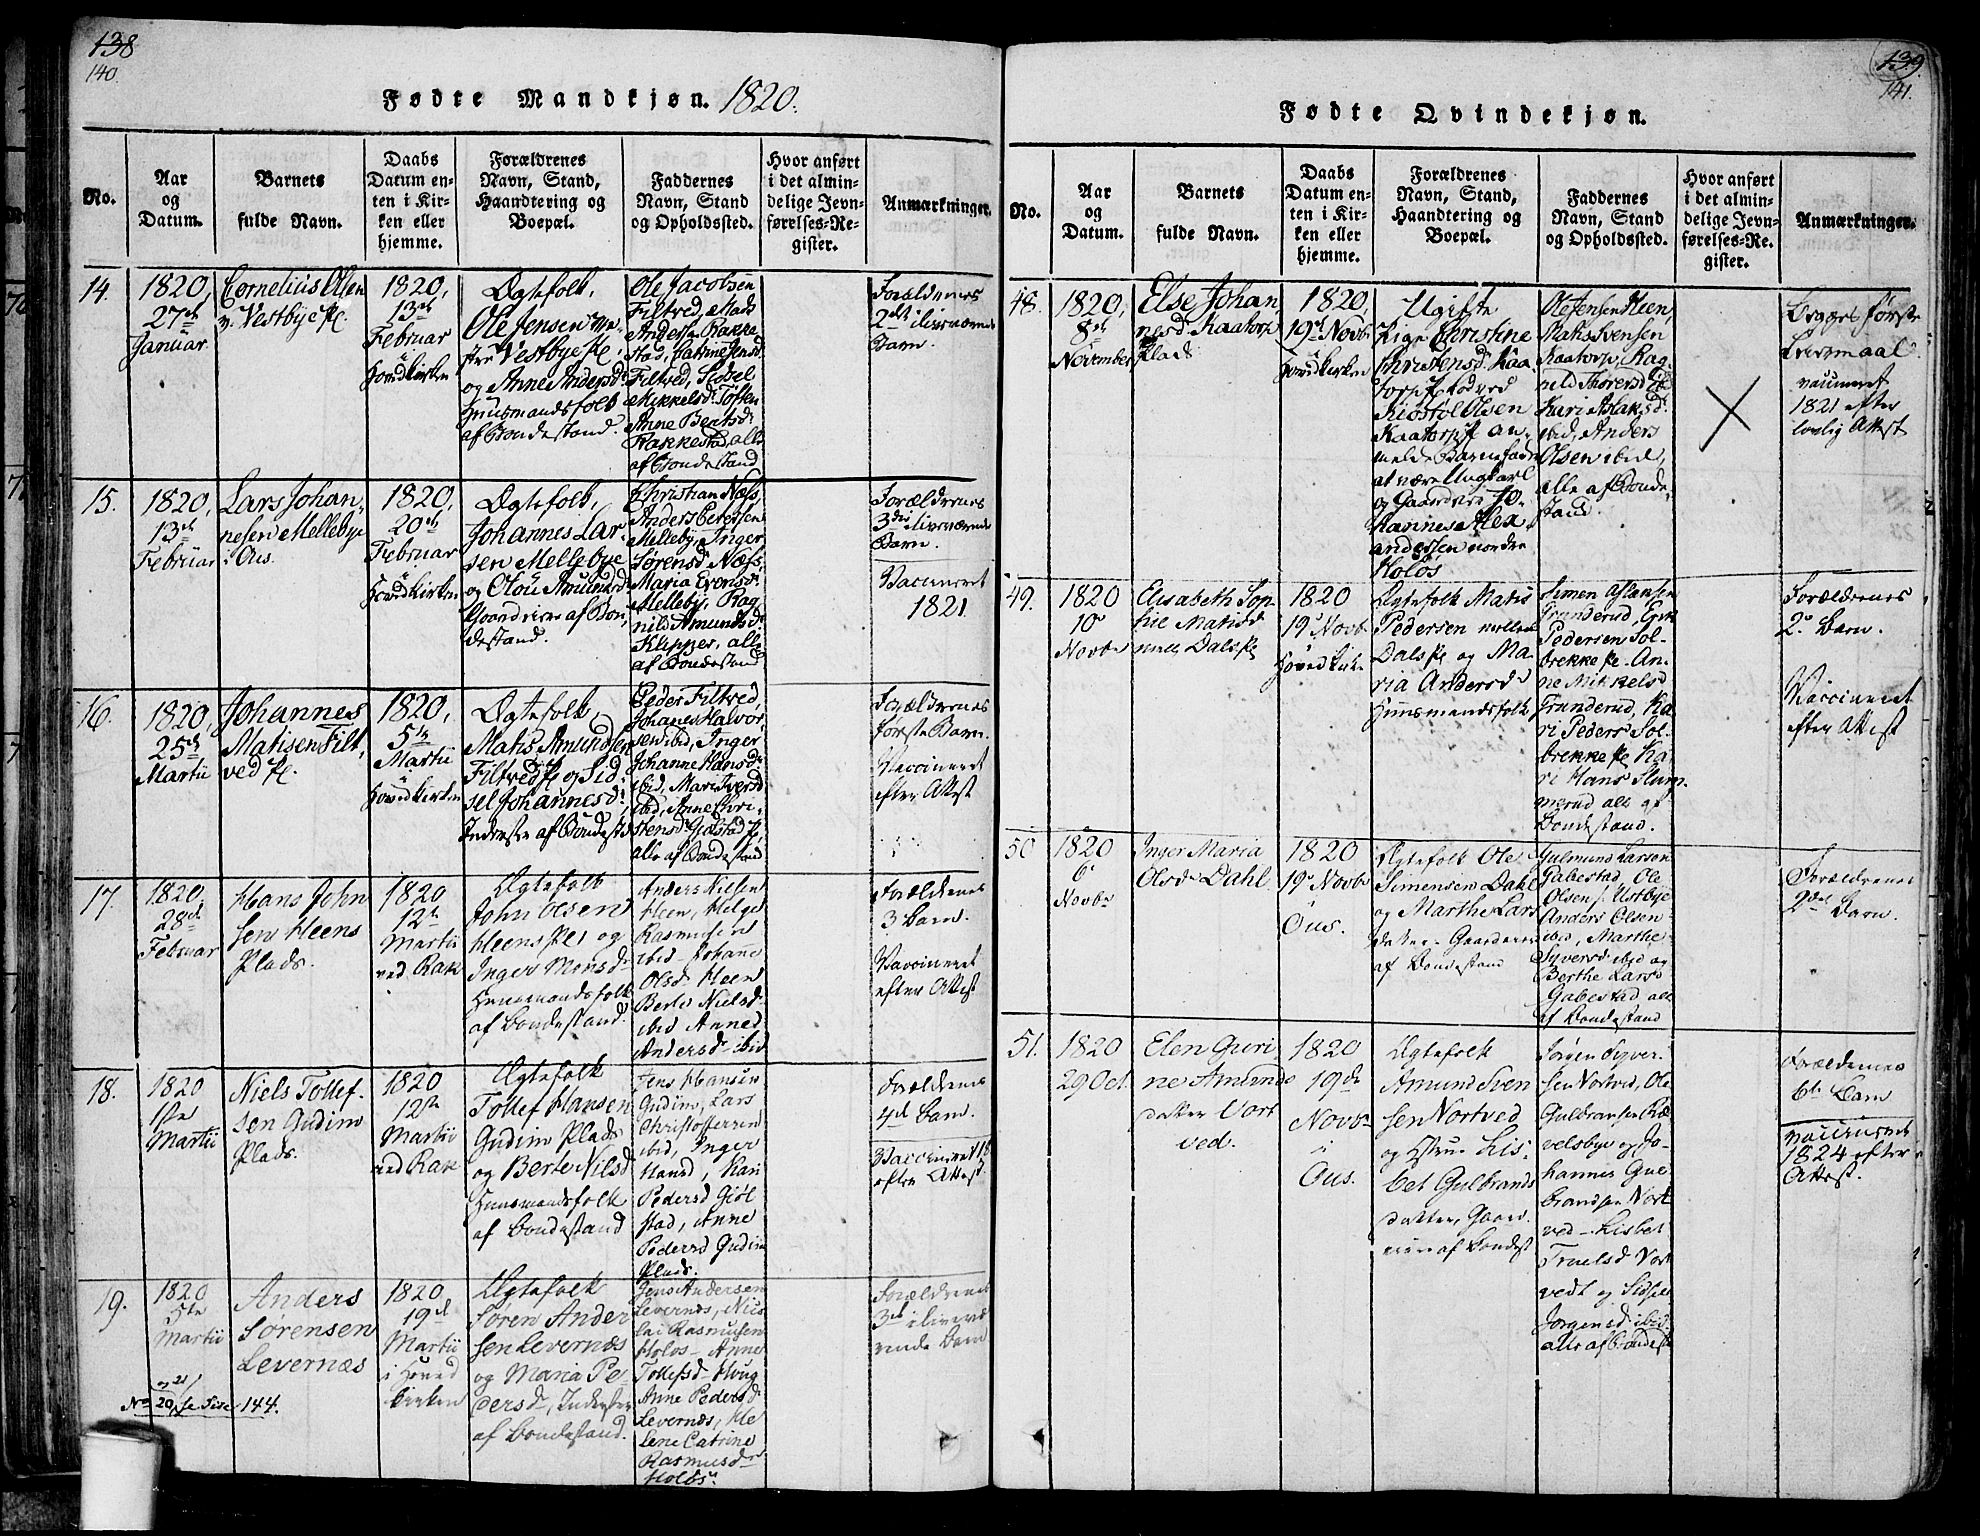 138
140.
Fødte Mandkjøn. 1820.
No.
Aar
og
Datum.
Barnets
fulde Navn.
Daabs
Datum en-
ten i Kir-
ken eller
hjemme.
Forældrenes
Navn, Stand,
Haandtering og
Boepæl.
Faddernes
Navn, Stand
og Opholdssted.
Hvor anført
i det almin-
delige Jevn-
førelses-Re-
gister.
Anmærkninger.
14.
1820,
27de
Januar
Cornelius Olsen
v. Vestbye Pl.
1820,
13de
Februar
Hovedkirken
Ægtefolk,
Ole Jensen
Vestbye Pl.
og Anne Andersd.
Huusmandsfolk
af Bondestand.
Ole Jacobsen
Filtved, Mads
Anders Rakke
stad,
Filtved, Sidsel
Mikkelsd. Toften
Anne Berthsd.
Rakkestad, alle
af Bondestand
Forældrenes
2det ilivværende
Barn.
15.
1820,
13de
Februar
Lars Johan-
nesen Mellebye
i Ous.
1820,
20de
Februar
Hovedkirken
Ægtefolk,
Johannes Lar-
sen Mellebye
og Olou Amundsd.
Gaardeiere af Bon-
destand.
Christian Næss,
Anders Beressen
Melleby, Inger
Sørensd Næss,
Maria Evensd.
Melleby, Rag-
nild Amundsd.
Klipper, alle
af Bondestand
Forældrenes
3die ilivværende
Barn.
Vaccineret
1821.
16.
1820,
25de
Martii
Johannes
Matisen Filt-
ved Pl.
1820,
5te
Martii
i
Hovedkirken
Ægtefolk,
Matis Amundsen
Filtved Pl. og Sid-
sel Johannesd.
Inderster af Bondestd
Peder Filtved,
Johanes Halvor-
sen ibid, Inger
Johanne Hansd.
ibid, Mari Iversd
ibid, Anne Chri-
stensd. Giølstad Pl.
alle af Bondestand
Forældrenes
første Barn.
Vaccineret
efter Attest
17.
1820,
28de
Februar
Hans John-
sen Heens
Plads.
1820
12te
Martii
ved Rak
Ægtefolk
John Olsen
Heens Pl. og
Inger Monsd.
Huusmandsfolk
af Bondestand.
Anders Nilsen
Heen, Helge
Rasmusen
ibid - Johanne
Olsd. Heen
Berte Nielsd.
ibid Anne
Andersd. ibid
Forældrenes
3 Barn.
Vaccineret
efter Attest
18.
1820
1ste
Martii
Niels Tollef-
sen Gudim
Plads.
1820
12te
Martii
ved Rak
Ægtefolk
Tollef Hansen
Gudim Plads
og Berte Nilsd
Huusmandsfolk
af Bondestand
Jens Hansen
Gudim, Lars
Christoffersen
ibid, Inger
Hansd, Kari
Pedersd Giøl-
stad, Anne
Pedersd Gudim
Plads.
Forældrenes
4de Barn.
Vaccineret 18
efter Attest.
19.
1820
5te
Martii
Anders
Sørensen
Levernæs
1820
19de
Martii
i Hoved
kirken
Ægtefolk
Søren Ander-
sen Levernæs
og Maria Pe-
dersd, Inderster
af Bondestand.
Jens Andersen
Levernæs, Nico-
lai Rasmusen
Holos - Anne
Tollefsd -
Anne Pedersd
Levernæs, He-
lene Catrine
Rasmusd.
Holos.
Forældrenes
3de iliveværende
Barn
og 21
No 20, se Side 144.
139
141.
Fødte Qvindekjøn.
No.
Aar
og
Datum.
Barnets
fulde Navn.
Daabs
Datum en-
ten i Kir-
ken eller
hjemme.
Forældrenes
Navn, Stand,
Haandtering og
Boepæl.
Faddernes
Navn, Stand
og Opholdssted.
Hvor anført
i det almin-
delige Jevn-
førelses-Re-
gister.
Anmærkninger.
48.
1820,
8de
November
Else Johan-
nesd. Kaatorp
Plads
1820,
19de Novbr
Hovedkirken
Ugifte
Pige Christine
Christensd. Kaa-
torp Pl.
Olsen
Kaatorp Pl. an-
melde Barnefader
at være Ungkarl
og Gaardeier Jo-
hannes Alex-
andersen nordre
Holos
Ole Jensen Heen,
Matis Svensen
Kaatorp, Rag-
nild Thoresd ibid
Kari Aslaksd.
ibid, Anders
Olsen ibid,
alle af Bonde-
stand.
X
Begges første
Leiermaal.
vaccineret
1821 efter
lovlig Attest
49.
1820
10de
Novbr
Elisabeth Sop-
hie Matisd
mell. Dals Pl.
1820
19de Novbr
Hovedkirken
Ægtefolk Matis
Pedersen mellem
Dals Pl. og Ma-
ria Andersd.
Huusmandsfolk
Simen Aslansen
Grønderud, Erik
Pedersen Sol-
brekke Pl. An-
ne Mikkelsd
Grønderud, Ka-
ri Peders Sol-
brekke Pl. Ka-
ri Hans Slum-
merud alle af
Bondestand.
Forældrenes
2de Barn.
Vaccineret
efter Attest
50
1820
6te
Novbr
Inger Maria
Olsdr Dahl
1820
19de Novbr
Ous.
Ægtefolk Ole
Simensen Dahl
og Marthe Lars-
datter - Gaardeiere
af Bondestand
Gulmund Larsen
Gabestad, Ole
Olsen Vestbye
Anders Olsen
ibid, Marthe
Syversd ibid og
Berthe Larsd
Gabestad, alle
af Bondestand
Forældrenes
2det Barn.
51.
1820
29 Oct.
Elen Guri-
ne Amunds-
datter Nort-
ved.
1820
19de
Novbr
i
Ous.
Ægtefolk
Amund Sven-
sen Nortved
og Hustrue Lis-
bet Gulbrands-
datter, Gaard-
eiere af Bondest
Søren Syver-
sen Nortved, Ole
Gulbransen Ræ-
velsbye og Jo-
hannes Gul-
brandsen Nort-
ved - Lisbet
Truelsd Nort-
vedt og Sidsel
Jørgensd ibid.
alle af Bondest
Forældrenes
6te Barn
vaccineret
1824 efter
Attest.